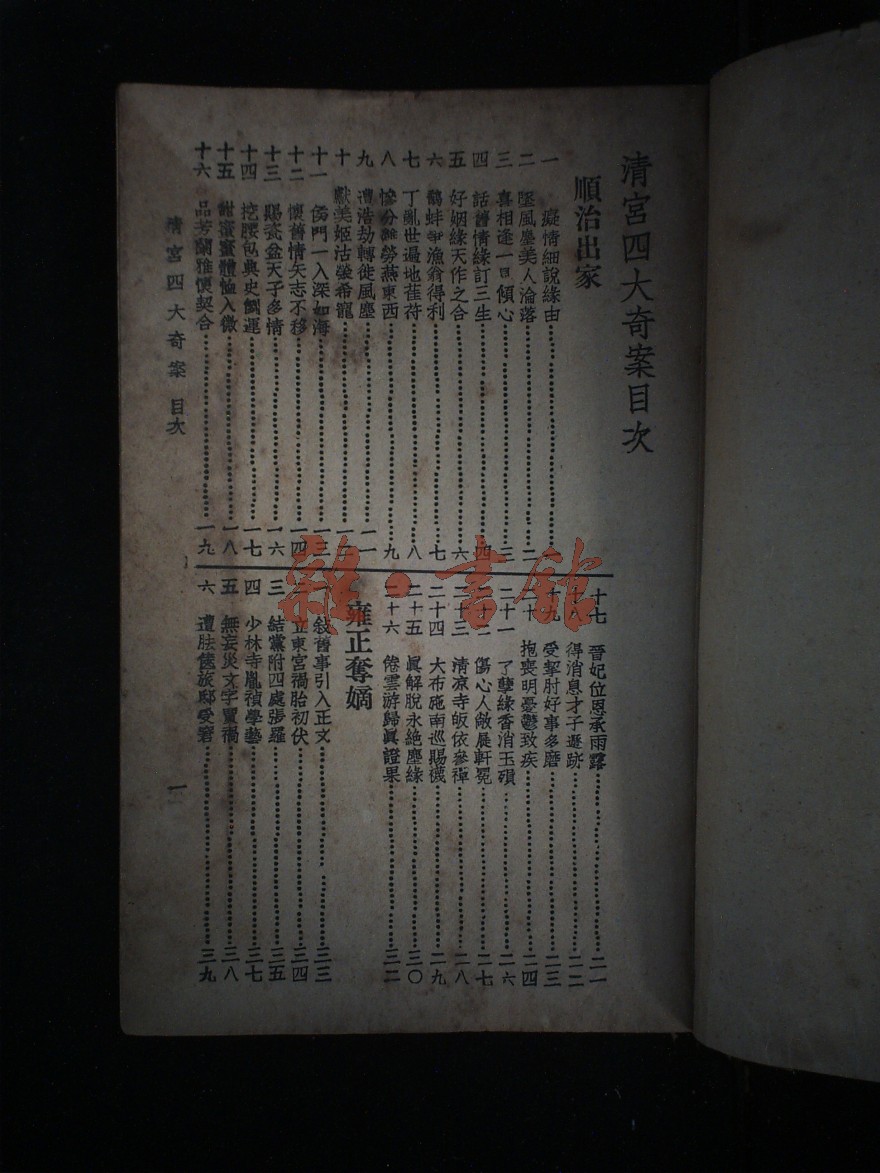 清宮四大奇案目次
順治出家
一 癡情細說緣由……一
二 墜風塵美人淪落……二
三 喜相逢一見傾心……三
四 話舊情緣訂三生……四
五 好姻緣天作之合……六
六 鷸蚌爭漁翁得利……七
七 丁亂世遍地萑苻……八
八 慘分離勞燕東西……九
九 遭浩劫轉徙風塵……一一
十 獻美姬沽榮希寵……一二
十一 侯門一入深如海……一三
十二 懷舊情矢志不移……一四
十三 賜瓷盆天子多情……一六
十四 挖腰包典史倒運……一七
十五 甜蜜蜜體恤入微……一八
十六 品芳蘭雅懷契合……一九
十七 晉妃位恩承雨露……二一
十八 得消息才子遯跡……二二
十九 受掣肘好事多磨……二三
二十 抱喪明憂鬱致疾……二四
二十一 了孽緣香消玉殞……二六
二十二 傷心人敝屣軒冕……二七
二十三 清凉寺皈依參禪……二八
二十四 大布施南巡賜襪……二九
二十五 眞解脫永絕塵緣……三〇
二十六 倦雲游歸眞證果……三二
雍正奪嫡
一 敍舊事引入正文……三三
二 立東宮禍胎初伏……三四
三 結黨附四處張羅……三五
四 少林寺胤禎學藝……三七
五 無妄災文字賈禍……三八
六 遭胠篋旅邸受窘……三九
清宮四大奇案 目次
一
雜·書館